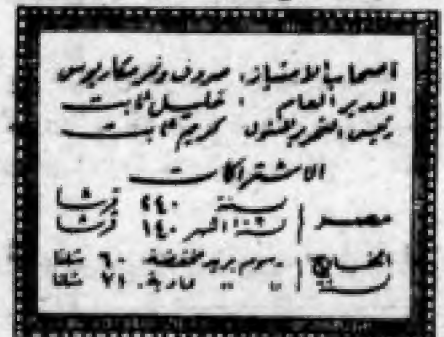 اصحاب الامتياز: صروف ونمر ومكاريوس
المدير العام : خليل ثابت
رئيس التحرير المسئول كريم ثابت
الاشتراكات
مصر | سنة ٢٤٠ قرشا
لستة اشهر ١٤٠ قرشا
الخارج | رسوم بريد مخفضة ٦٠ شلنا
لسنة | " " عادية ٧١ شلنا